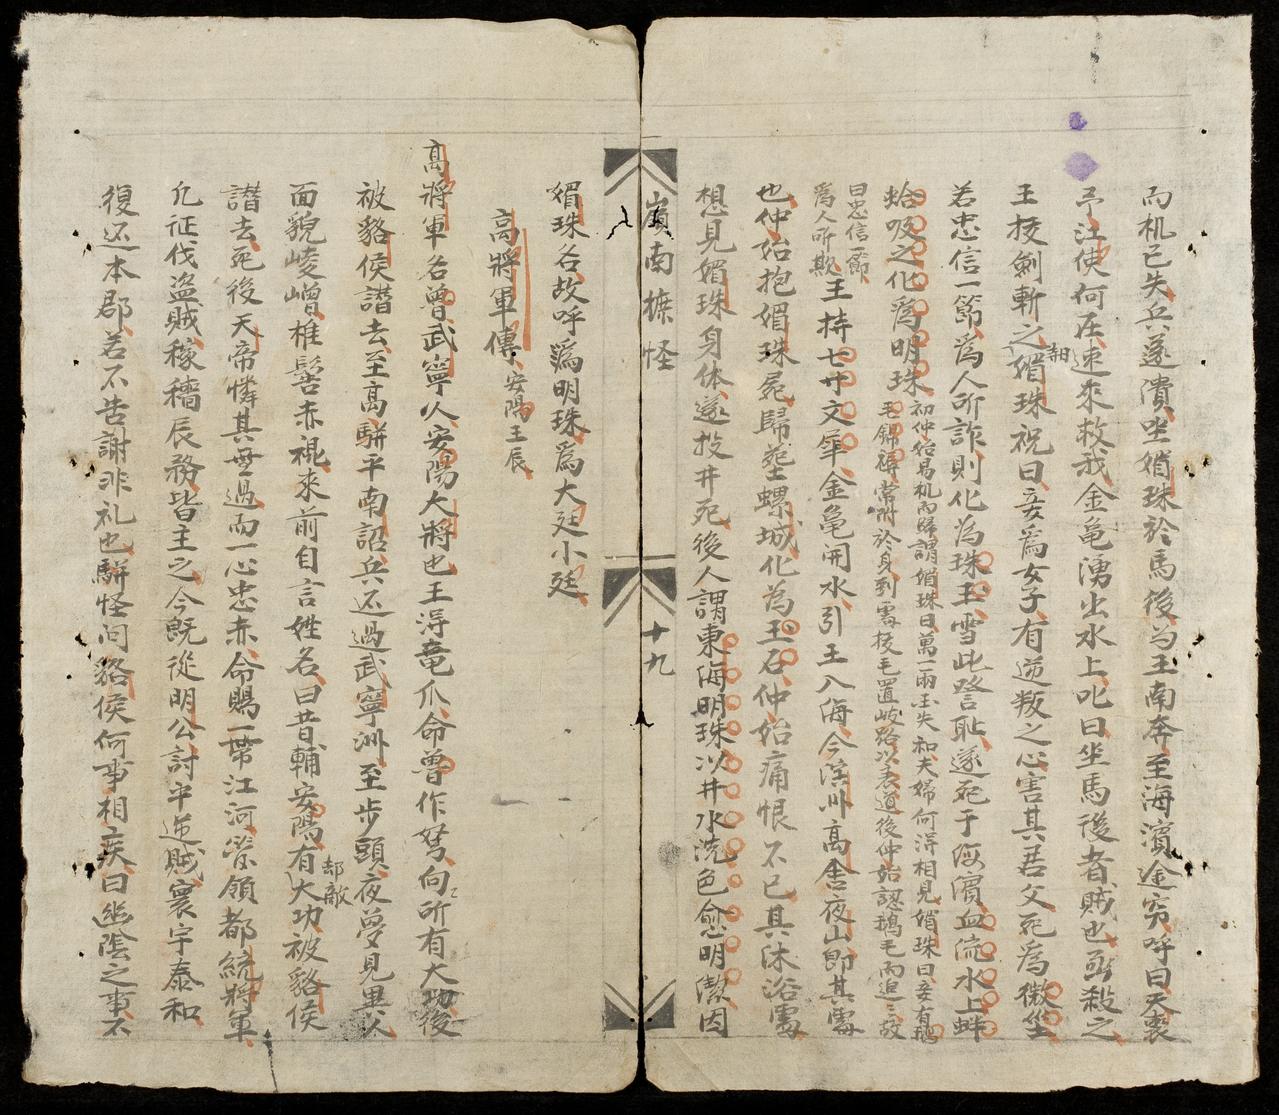 而机已失兵遂潰坐媚珠於馬後与王南奔至海濱途窮呼曰天喪
予江使何在速來救我金龜湧出水上叱曰坐馬後者賊也盍殺之
王拔劍斬之媚珠祝曰妾爲女子有逆叛之心害其君父死爲微尘
若忠信一節爲人所詐則化為珠玉雪此讐恥遂死于海濱血流水上蚌
蛤吸之化爲明珠
初仲始易机而歸謂媚珠曰萬一兩国失和夫婦何淂相見媚珠曰妾有鵝
毛錦褥常附於身到處拔毛置岐路以表道後仲始認鵝毛而追之故
曰忠信一節
爲人所欺
王持七寸文犀金龜開水引王入海今演州高舍夜山卽其處
也仲始抱媚珠屍歸葬螺城化为玉石仲始痛恨不已其沐浴處
想見媚珠身体遂投井死後人謂東海明珠以井水洗色愈明潔因
嶺南摭怪
十九
媚珠名故呼爲明珠爲大廷小廷
高將軍傳
安陽王辰
高將軍名曾武寧人安陽大將也王淂竜爪命曾作弩向所有大功後
被貉侯譖去至高駢平南詔兵还過武寧洲至步頭夜夢見異人
面貌崚嶒椎髻赤裩來前自言姓名曰昔輔安陽有大功被貉侯
却敵
譖去死後天帝憐其無過而一心忠赤命賜一帶江河管領都統將軍
凡征伐盗賊稼穡辰務皆主之今旣從明公討平逆賊寰宇泰和
復还本郡若不告謝非礼也駢怪问貉侯何事相疾曰幽陰之事不